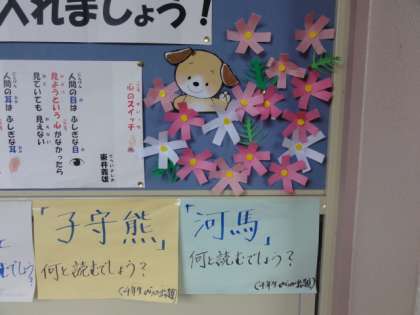 入れましょう!
心のスイッチ
東井義雄
人間の目は ふしぎな目
見ようという心がなかったら
見ていても 見えない
人間の耳は ふしぎな耳
「子守熊」
何と読むでしょう?
「河馬」
何と読むでしょう?